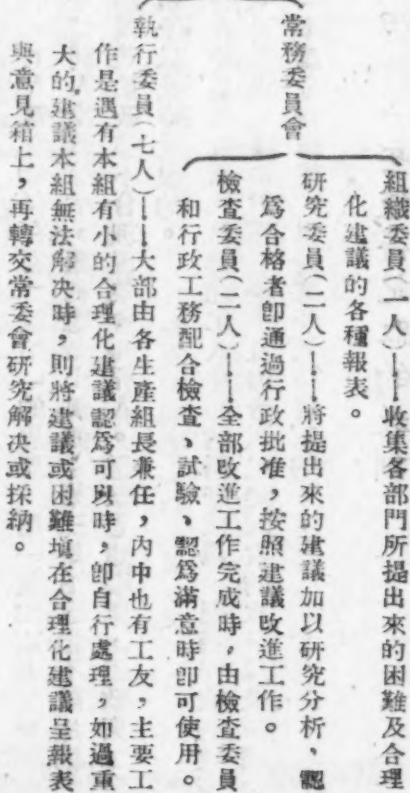 常務委員會
組織委員(一人)——收集各部門所提出來的困難及合理
化建議的各種報表。
研究委員(二人)——將提出來的建議加以研究分析，認
爲合格者卽通過行政批准，按照建議改進工作。
檢查委員(二人)——全部改進工作完成時，由檢查委員
和行政工務配合檢查、試驗、認爲滿意時卽可使用。
執行委員(七人)——大部由各生產組長兼任，內中也有工友，主要工
作是遇有本組有小的合理化建議認爲可以時，卽自行處理，如過重
大的建議本組無法解决時，則將建議或困難塡在合理化建議呈報表
與意見箱上，再轉交常委會研究解决或採納。